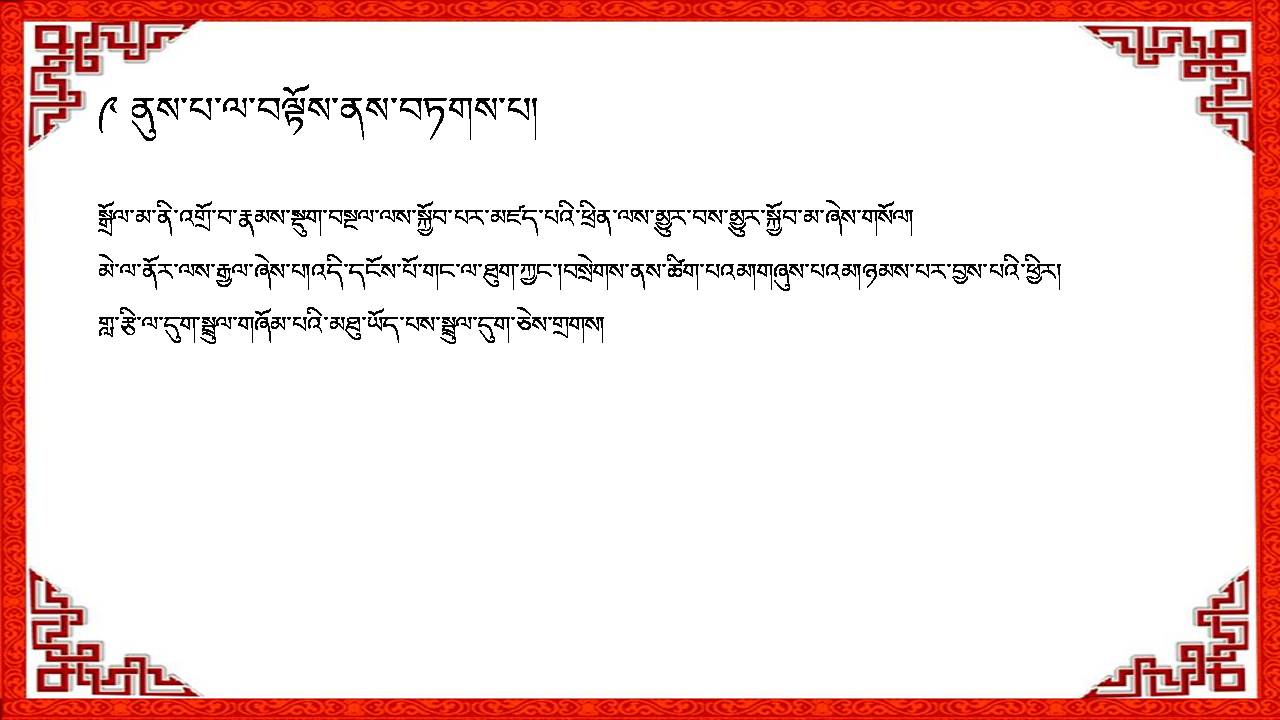 ༩ ནུས་པ་ལ་བལྟོས་ནས་བཏགས་པ།
སྒྲོལ་མ་ནི་འགྲོ་བ་རྣམས་སྡུག་བསྔལ་ལས་སྐྱོབ་པར་མཛད་པའི་ཕྲིན་ལས་མྱུར་བས་མྱུར་སྐྱོབ་མ་ཞེས་གསོལ།
མེ་ལ་ནོར་ལས་རྒྱལ་ཞེས་པ།འདི་དངོས་པོ་གང་ལ་ཐུག་ཀྱང་།བསྲེགས་ནས་ཚིག་པའམ།གཞུས་པའམ།ཉམས་པར་བྱས་པའི་ཕྱིར།
གླ་རྩི་ལ་དུག་སྦྲུལ་གཞོམ་པའི་མཐུ་ཡོད་པས་སྦྲུལ་དུག་ཅེས་གྲགས།